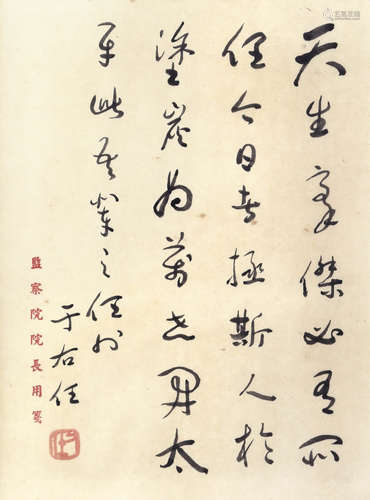 天生豪傑必有所
任今日者極斯人於
塗炭為萬世開太
平此吾輩之任也
于右任
監察院院長用箋